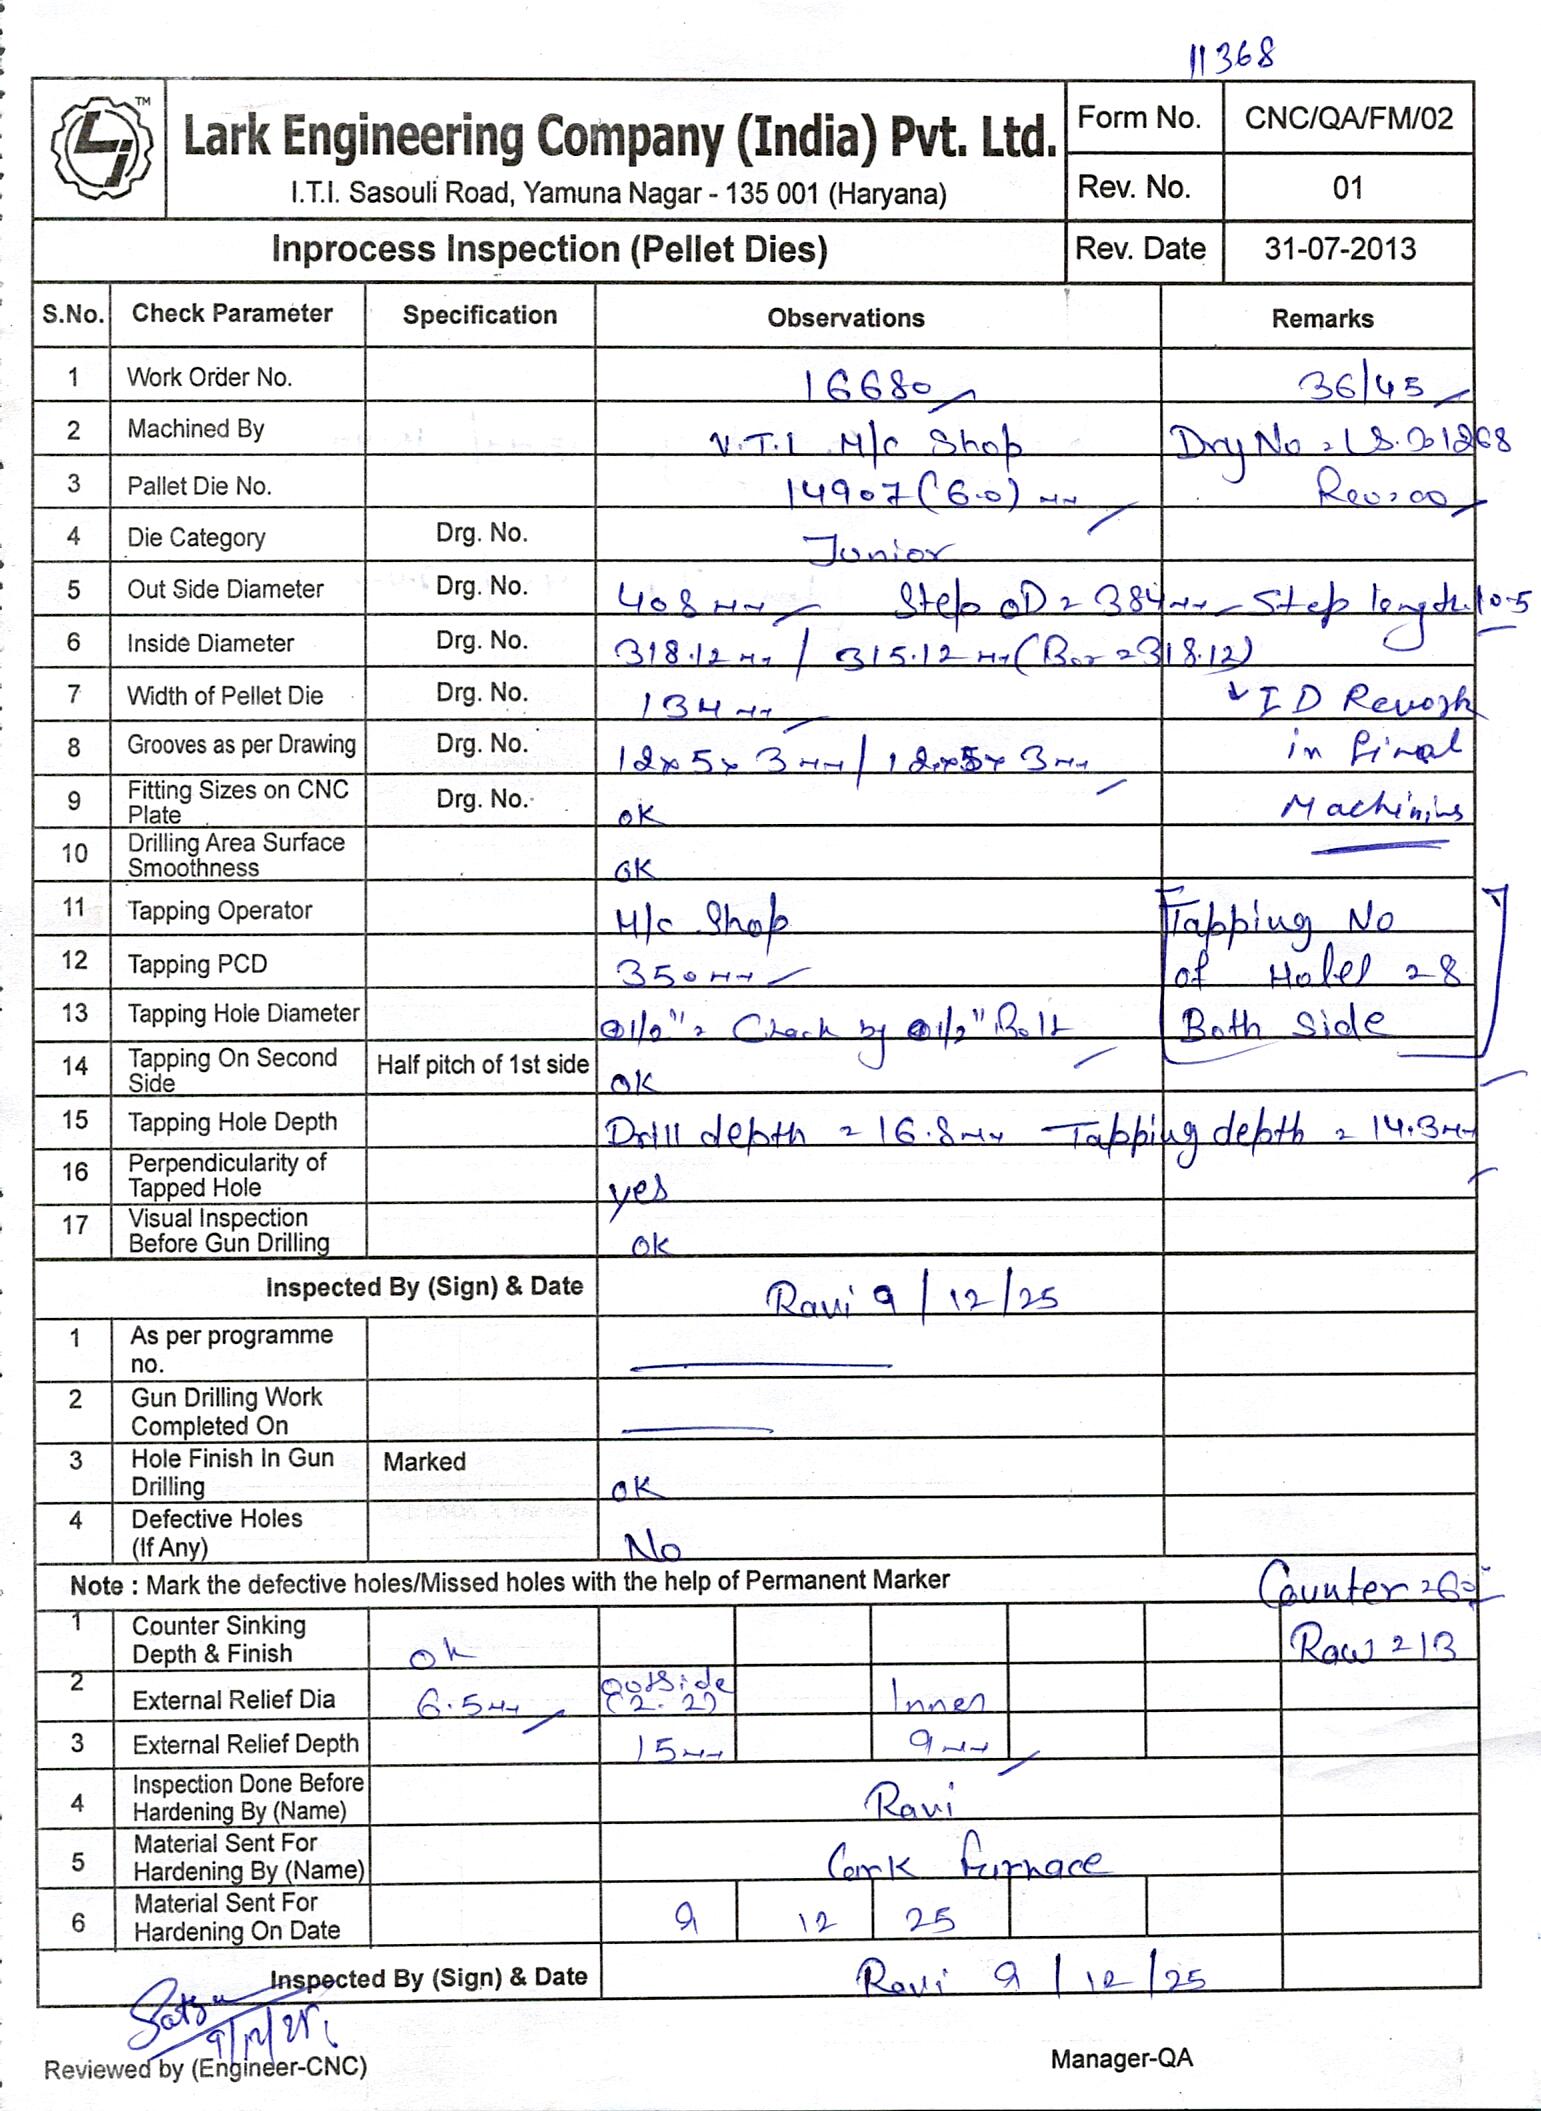 11368
TM
Lark Engineering Company (India) Pvt. Ltd.
I.T.I. Sasouli Road, Yamuna Nagar - 135 001 (Haryana)
Form No. CNC/QA/FM/02
Rev. No. 01
Inprocess Inspection (Pellet Dies) Rev. Date 31-07-2013
S.No. Check Parameter Specification Observations Remarks
1 Work Order No. 16680 36/45
2 Machined By V.T.L M/c Shop
3 Pallet Die No. 14907 (6.0) mm Rev=00
4 Die Category Drg. No. Junior
5 Out Side Diameter Drg. No. 408 mm Step OD = 384 mm Step length 10.5
6 Inside Diameter Drg. No. 318.12 mm / 315.12 mm (Bor = 318.12)
7 Width of Pellet Die Drg. No. 134 mm ID Rework
8 Grooves as per Drawing Drg. No. 12x5x3 mm / 12x5x3 mm in final
9 Fitting Sizes on CNC Plate Drg. No. OK Machining
10 Drilling Area Surface Smoothness OK
11 Tapping Operator M/c Shop Tapping No
12 Tapping PCD 350 mm of Holes = 8
13 Tapping Hole Diameter Ø1/2" = Check by Ø1/2" Bolt Both Side
14 Tapping On Second Side Half pitch of 1st side OK
15 Tapping Hole Depth Drill depth = 16.8 mm Tapping depth = 14.3 mm
16 Perpendicularity of Tapped Hole yes
17 Visual Inspection Before Gun Drilling OK
Inspected By (Sign) & Date Ravi 9/12/25
1 As per programme no.
2 Gun Drilling Work Completed On
3 Hole Finish In Gun Drilling Marked OK
4 Defective Holes (If Any) No
Note : Mark the defective holes/Missed holes with the help of Permanent Marker Counter
1 Counter Sinking Depth & Finish ok Raw = 13
2 External Relief Dia 6.5 mm outside (2.2) Inner
3 External Relief Depth 15 mm 9 mm
4 Inspection Done Before Hardening By (Name) Ravi
5 Material Sent For Hardening By (Name) Furnace
6 Material Sent For Hardening On Date 9 12 25
Inspected By (Sign) & Date Ravi 9/12/25
Reviewed by (Engineer-CNC) Manager-QA